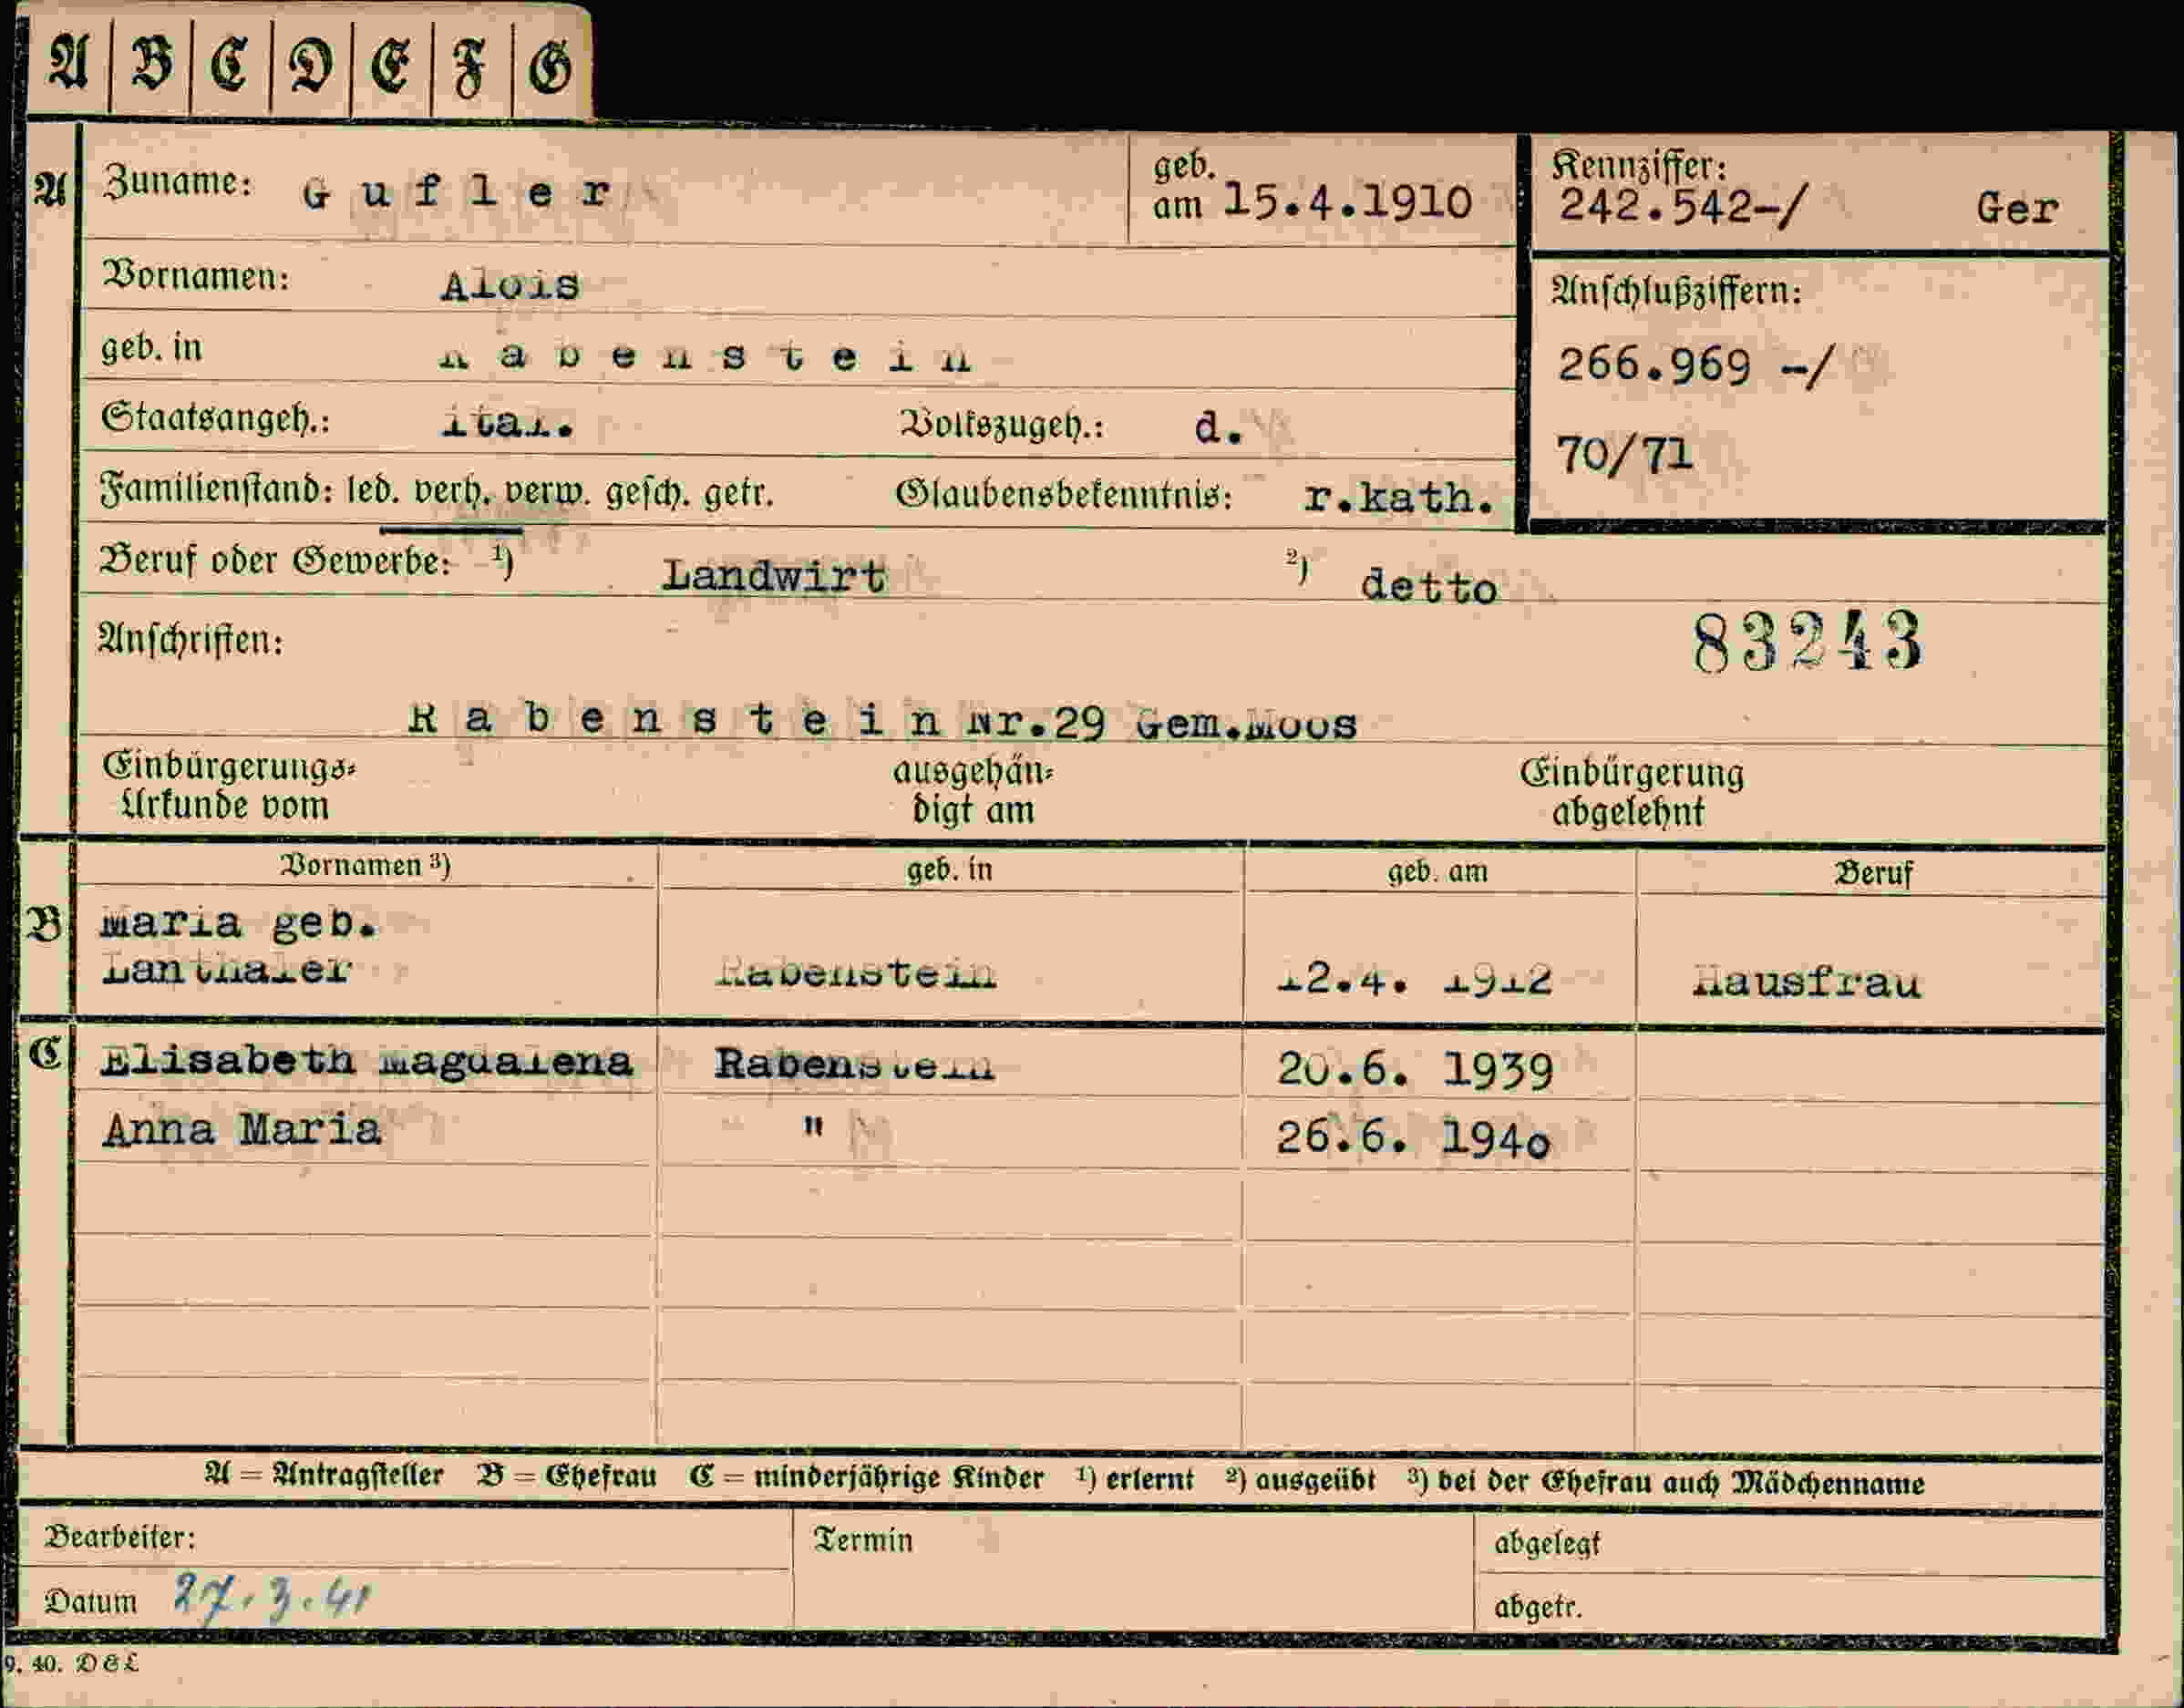 A B C D E F G
A Zuname: Gufler geb. am 15.4.1910 Kennziffer: 242.542-/ Ger
Vornamen: Alois Anschlußziffern:
geb. in Rabenstein 266.969 -/
Staatsangeh.: ital. Volkszugeh.: d. 70/71
Familienstand: led. verh. verw. gesch. getr. Glaubensbekenntnis: r.kath.
Beruf oder Gewerbe: ¹) Landwirt ²) detto
Anschriften: 83243
Rabenstein Nr.29 Gem.Moos
Einbürgerungs= ausgehän= Einbürgerung
Urkunde vom digt am abgelehnt
Vornamen ³) geb. in geb. am Beruf
B Maria geb.
Lanthaler Rabenstein 12.4. 1912 Hausfrau
C Elisabeth Magdalena Rabenstein 20.6. 1939
Anna Maria " 26.6. 1940
A = Antragsteller B = Ehefrau C = minderjährige Kinder ¹) erlernt ²) ausgeübt ³) bei der Ehefrau auch Mädchenname
Bearbeiter: Termin abgelegt
Datum 27.3.41 abgetr.
9. 40. D&L